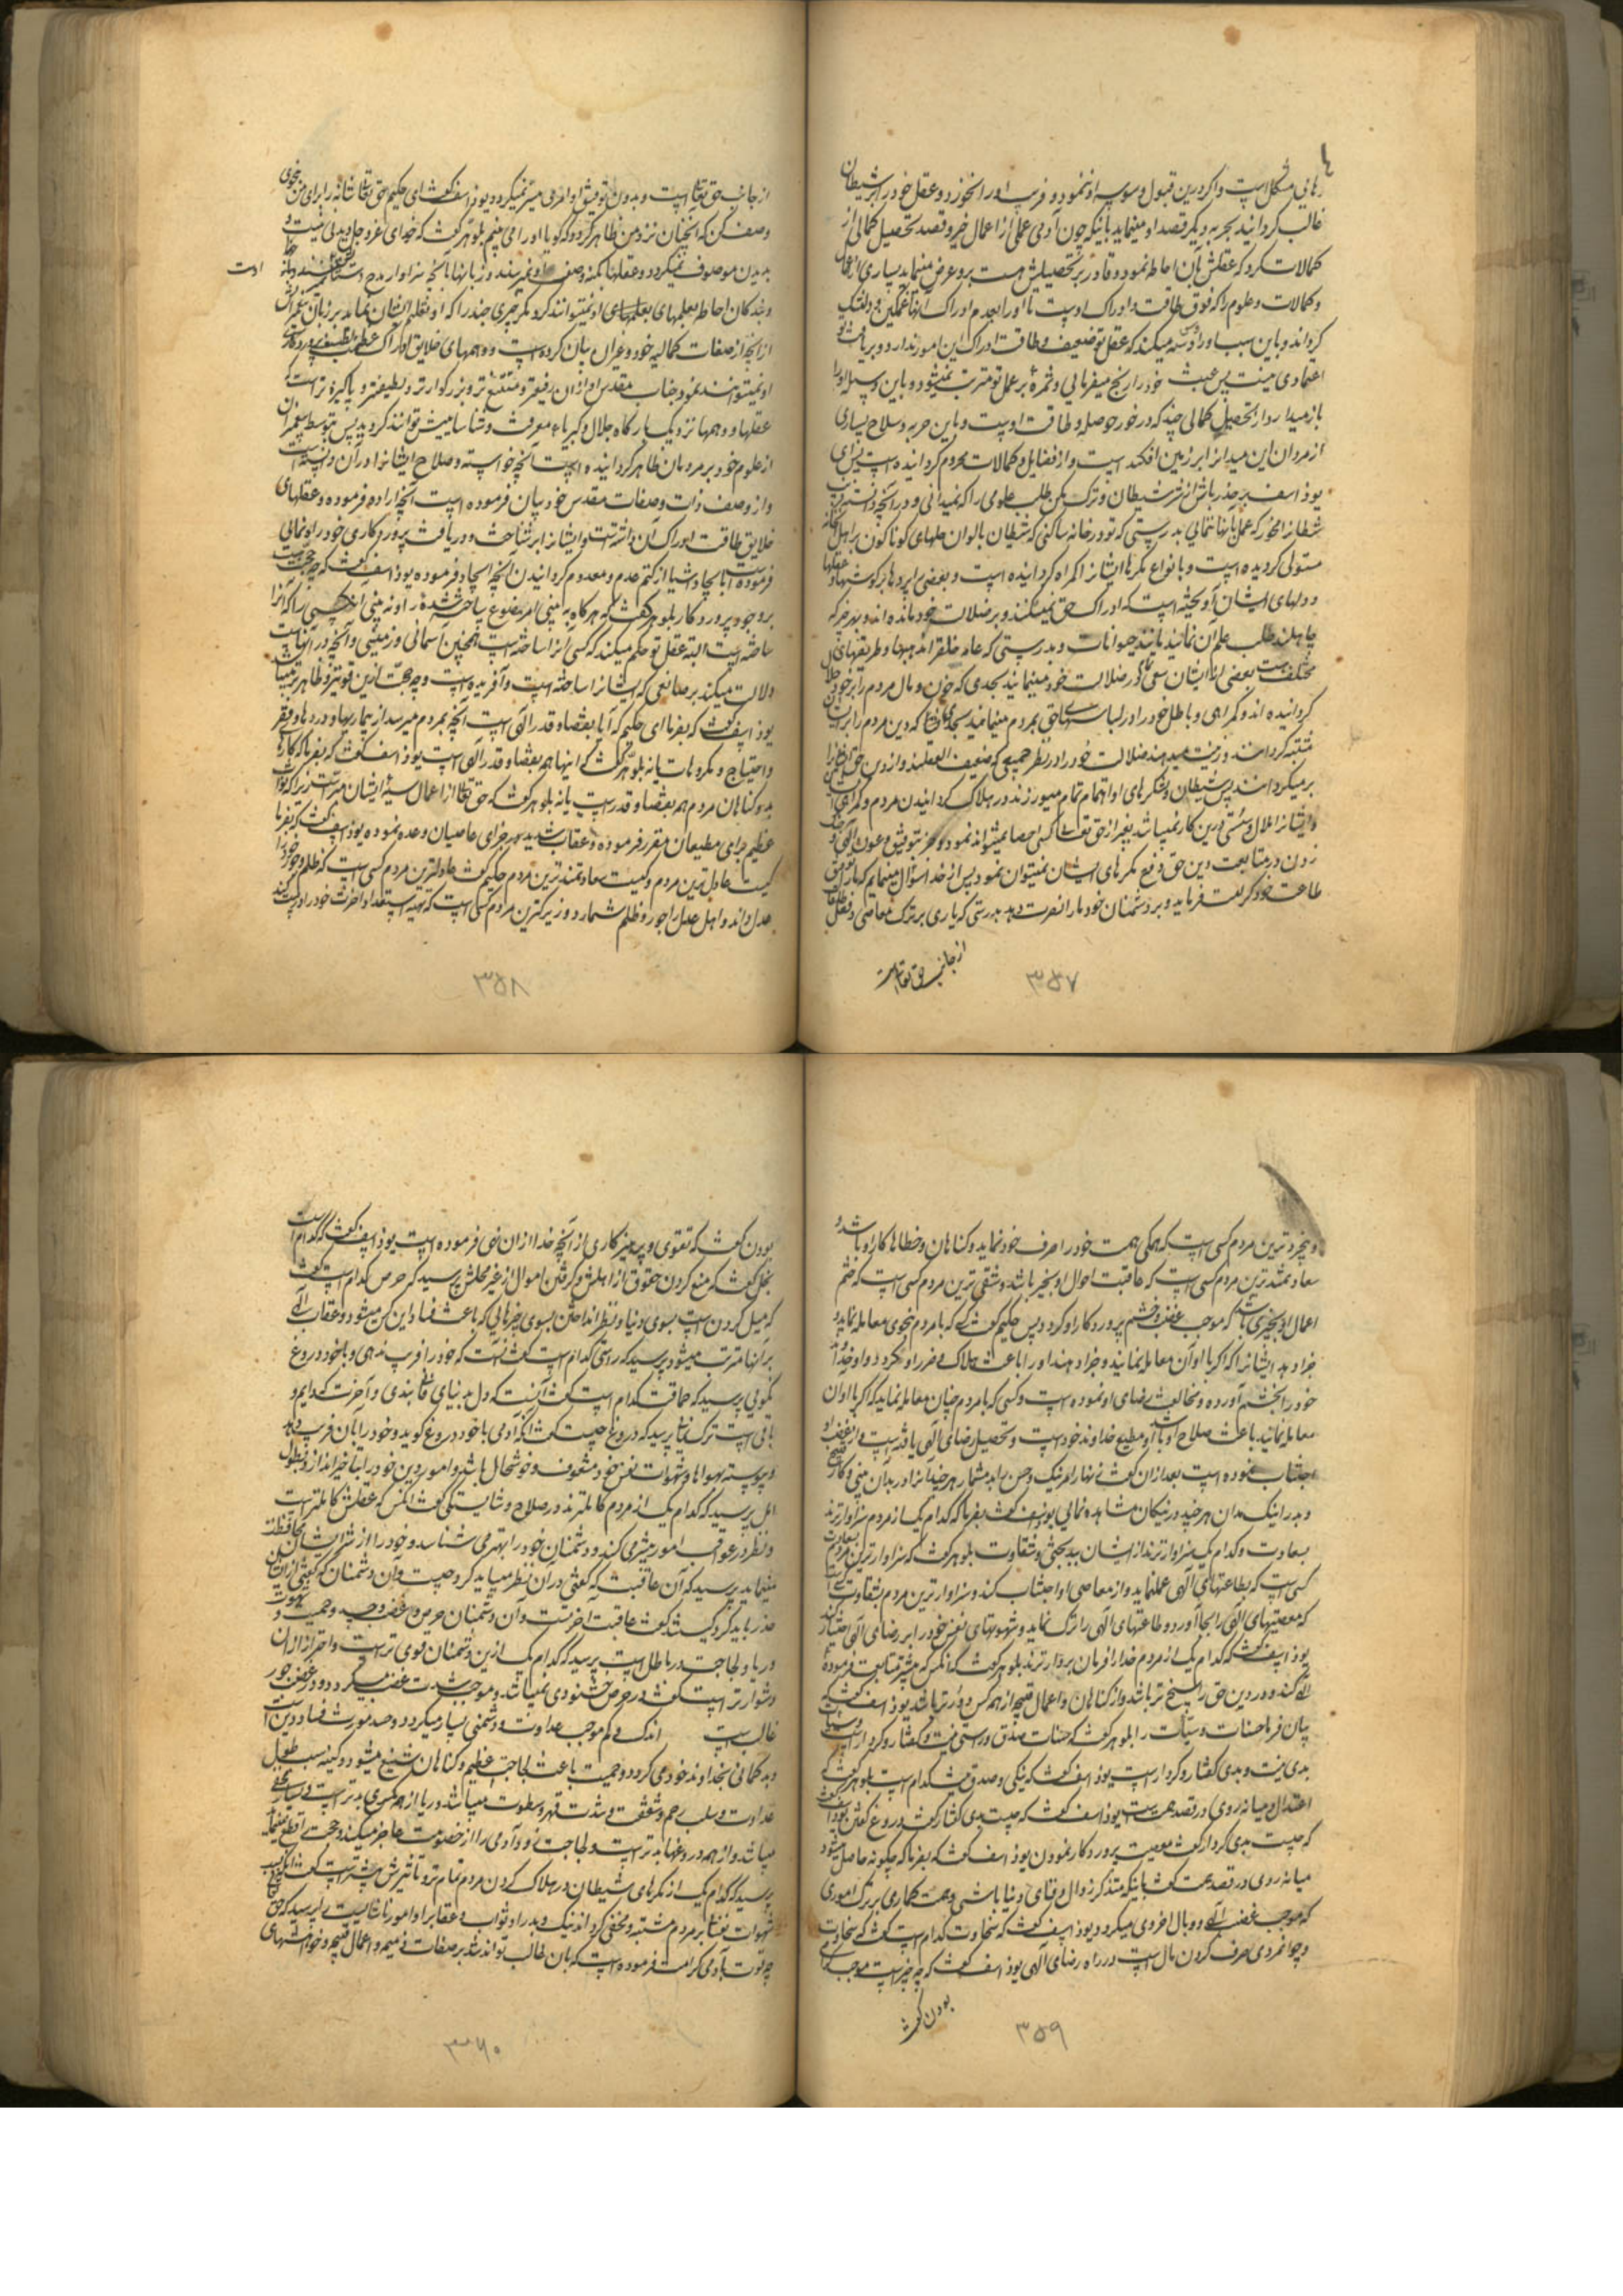 رهائی مشکل است و اگر درین قبول وسوسه او ننمود و فریب او را نخورد و عقل خود را بر شیطان
غالب گردانید بحربه دیگر قصد او مینماید باینکه چون آدمی عملی از اعمال خیر و قصد تحصیل کمالی از
کمالات کرد که عقلش بآن احاطه نمود و قادر بر تحصیلش هست برو عرض مینماید بسیاری از اعمال
و کمالات و علوم را که فوق طاقت و ادراک اوست تا او را بعدم ادراک آنها غمگین و دلتنگ
گرداند و باین سبب او را وسوسه میکند که عقل تو ضعیف و طاقت ادراک این امور ندارد و بریافت تو
اعتمادی نیست پس عبث خود را رنج میفرمائی و ثمرهٔ بر عمل تو مترتب نمیشود و باین وسیله او را
باز میدارد از تحصیل کمالی چند که در خور حوصله و طاقت اوست و باین حربه و سلاح بسیاری
از مردان این میدان را بر زمین افکنده است و از فضایل و کمالات محروم گردانیده است پس ای
یوذاسف بر حذر باش از شر شیطان و ترک مکن طلب علومی را که نمیدانی و در آنچه دانستهٔ فریب
شیطان را مخور که عمل بآنها ننمائی بدرستی که تو در خانه ساکنی که شیطان بالوان حیلهای گوناگون بر اهل آنخانه
مستولی گردیده است و بانواع مکرها ایشان را گمراه گردانیده است و بعضی را پردها بر گوشها و عقلها
و دلهای ایشان آویخته است که ادراک حق نمیکنند و بر ضلالت خود مانده‌اند و بهر چه که
جاهلند طلب علم آن نمانند مانند حیوانات و بدرستی که عامه خلق را مذهبها و طریقهای
مختلف هست بعضی از ایشان سعی در ضلالت خود مینمایند بحدی که خون و مال مردم را بر خود حلال
گردانیده‌اند و گمراهی و باطل خود را در لباس حق بمردم مینمایند که دین مردم را بر ایشان
مشتبه گردانند و زینت میدهند ضلالت خود را در نظر جمیعی که ضعیف العقلند و از دین حق ایشان را
برمیگردانند پس شیطان و لشکرهای او اهتمام تمام میورزند در هلاک گردانیدن مردم و گمراهی
و ایشان را ملال و سستی درین کار نمیباشد بغیر از حق تعالی کسی احصا نمیتواند نمود و جز بتوفیق و عون الهی و
زدن در متابعت دین حق دفع مکرهای ایشان نمیتوان نمود پس از خدا سؤال مینمایم که ما را توفیق
طاعت خود کرامت فرماید و بر دشمنان خود ما را نصرت دهد بدرستی که یاری بر ترک معاصی و فعل طاعات
از جانب حق تعالی است
۳۵۷
از جانب حق تعالی است و بدون توفیق او امری میسر نمیگردد یوذاسف گفت ای حکیم حق تعالی شانه را برای من بنحوی
وصف کن که آنچنان نزد من ظاهر گردد که گویا او را می بینم بلوهر گفت که خدای عز و جل دیدنی نیست و
بدیدن موصوف نمیگردد و عقلها بکنه وصف او نمیرسند و زبانها بآنچه سزاوار مدح اوست
اوست
و بندگان احاطه بعلمهای او نمیتوانند کرد مگر چیزی چند را که او تعلیم ایشان نماید بر زبان پیغمبران
از آنچه از صفات کمالیه خود بیان کرده است و وهمهای خلایق ادراک عظمت پروردگاری
او نمیتوانند نمود جناب مقدس او از ان رفیعتر و ممتنع تر و بزرگوارتر و لطیفتر و پاکیزه تر است که
عقلها و وهمها نزدیک بارگاه جلال و کبریاء معرفت و شناسائیش توانند گردید پس بتوسط پیغمبران
از علوم خود بر مردمان ظاهر گردانیده است آنچه خواسته و صلاح ایشان را در آن دانسته است
و از وصف ذات و صفات مقدس خود بیان فرموده است آنچه اراده فرموده و عقلهای
خلایق طاقت ادراک آن داشته است و ایشان را بر شناخت و دریافت پروردگاری خود راه نمائی
فرموده است بایجاد اشیا از کتم عدم و معدوم گردانیدن آنچه ایجاد فرموده یوذاسف گفت که چه حجت هست
بر وجود پروردگار بلوهر گفت که هرگاه به بینی امر مصنوع ساخته شده را و نه بینی آن کسی را که آنرا
ساخته است البته عقل تو حکم میکند که کسی آنرا ساخته است همچنین آسمانی و زمینی و آنچه در آنهاست
دلالت میکند بر صانعی که ایشان را ساخته است و آفریده است و چه حجت ازین قویتر و ظاهرتر میباشد
یوذاسف گفت که بفرما ای حکیم که آیا بقضا و قدر الهی است آنچه بمردم میرسد از بیماریها و دردها و فقر
و احتیاج و مکروهات یا نه بلوهر گفت که اینها همه بقضا و قدر الهی است یوذاسف گفت که بفرما که کارهای
بد و گناهان مردم هم بقضا و قدر است یا نه بلوهر گفت که حق تعالی از اعمال سیئهٔ ایشان مبراست زیرا که ثواب
عظیم برای مطیعان مقرر فرموده و عقاب شدید بجزای عاصیان وعده نموده یوذاسف گفت که بفرما
کیست عادل ترین مردم و کیست سعادتمند ترین مردم حکیم گفت عادلترین مردم کسی است که ظلم و جور را
عدل داند و اهل عدل را جور و ظلم شمارد و زیرکترین مردم کسی است که تهیه استعداد آخرت خود را درست کند
۳۵۸
و بیخردترین مردم کسی است که همگی همت خود را صرف خود نماید و گناهان و خطاها کار او باشد و
سعادتمندترین مردم کسی است که عاقبت احوال او بخیر باشد و شقی ترین مردم کسی است که ختم
اعمال او بچیزی باشد که موجب غضب و خشم پروردگار او گردد پس حکیم گفت کسی که با مردم بنحوی معامله نماید و
جزا دهد ایشان را که اگر با او آن معامله نمایند و جزا دهند او را باعث هلاک و ضرر او گردد او خداوند
خود را بخشم آورده و مخالفت رضای او نموده است و کسی که با مردم چنان معامله نماید که اگر با او آن
معامله نمایند باعث صلاح او باشد او مطیع خداوند خود است و تحصیل رضای الهی یافته است و از غضب او
اجتناب نموده است بعد از ان گفت زنهار امر نیک و حسن را بد مشمار هر چند آنرا در بدان بینی و کار قبیح
و بد را نیک مدان هر چند در نیکان مشاهده نمائی یوذاسف گفت بفرما که کدام یک از مردم سزاوارترند
بسعادت و کدام یک سزاوارترند از ایشان ببدبختی و شقاوت بلوهر گفت که سزاوارترین مردم بسعادت
کسی است که بطاعتهای الهی عمل نماید و از معاصی او اجتناب کند و سزاوارترین مردم بشقاوت کسی است
که معصیتهای الهی را بجا آورد و طاعتهای الهی را ترک نماید و شهوتهای نفس خود را بر رضای الهی اختیار کند
یوذاسف گفت که کدام یک از مردم خدا را فرمان بردارترند بلوهر گفت که آنکس که بیشتر متابعت فرمودهٔ
الهی کند و در دین حق راسخ تر باشد و از گناهان و اعمال قبیحه از همه کس دورتر باشد یوذاسف گفت که
بیان فرما حسنات و سیئات را بلوهر گفت که حسنات صدق و راستی نیت و گفتار و کردار است و سیئات
بدی نیت و بدی گفتار و کردار است یوذاسف گفت که نیکی و صدق نیت کدام است بلوهر گفت که
اعتدال و میانه روی در قصد همت است یوذاسف گفت که چیست بدی گفتار گفت دروغ گفتن یوذاسف گفت
که چیست بدی کردار گفت معصیت پروردگار نمودن یوذاسف گفت که بفرما که چگونه حاصل میشود
میانه روی در قصد همت گفت باینکه متذکر زوال و فنای دنیا باشی و همت گماری بر ترک اموری
که موجب غضب الهی و وبال اخروی میگردد یوذاسف گفت که سخاوت کدام است گفت که سخاوت
و جوانمردی صرف کردن مال است در راه رضای الهی یوذاسف گفت که چه چیز است موجب گرامی
بودن گفت
۳۵۹
بودن گفت که تقوی و پرهیزکاری از آنچه خدا از ان نهی فرموده است یوذاسف گفت که کدام است
بخل گفت که منع کردن حقوق از اهلش و گرفتن اموال از غیر محلش پرسید که حرص کدام است گفت
که میل کردن است بسوی دنیا و نظر انداختن بسوی چیزهائی که باعث فساد این کس میشود و عقاب الهی
بر آنها مترتب میشود پرسید که راستی کدام است گفت آنست که خود را فریب ندهی و با خود دروغ
نگوئی پرسید که حماقت کدام است گفت آنست که دل بدنیای فانی بندی و آخرت که دایم و
باقی است ترک نمائی پرسید که دروغ چیست گفت آنکه آدمی با خود دروغ گوید و خود را بآن فریب دهد
و پیوسته بهواها و شهوات نفس خود مشعوف و خوشحال باشد و امور دین خود را بتاخیر اندازد و بطول
امل پرسید که کدام یک از مردم کاملترند در صلاح و شایستگی گفت آنکس که عقلش کاملتر است
و نظر در عواقب امور بیشتر می کند و دشمنان خود را بهتر می شناسد و خود را از شر ایشان محافظت
مینماید پرسید که آن عاقبت که گفتی در آن نظر میباید کرد چیست و آن دشمنان که گفتی از ایشان
حذر باید کرد کیستند گفت عاقبت آخرتست و آن دشمنان حرص و غضب و حسد و حمیت و شهوت و
ریا و لجاجت در باطل است پرسید که کدام یک ازین دشمنان قوی تر است و احتراز از ان
دشوارتر است گفت در حرص خشنودی نمیباشد و موجب شدت غضب میگردد و در غضب جور
غالب است اندک و کم موجب عداوت و دشمنی بسیار میگردد و حسد مورث فساد دین است
و بد گمانی بخداوند خود می گردد و حمیت باعث لجاجت عظیم و گناهان شنیع میشود و کینه سبب طول
عداوت و سلب رحم و شفقت و شدت قهر و سطوت میباشد و ریا از همه مکری بدتر است
میباشد و از همه دروغها بدتر است و لجاجت زود آدمی را از خصومت عاجز میکند و حجت را قطع مینماید
پرسید که کدام یک از مکرهای شیطان در هلاک کردن مردم تمام تر و تأثیرش بیشتر است گفت آنکه بسبب
شهوات نفسانی بر مردم مشتبه و مخفی گرداند نیک و بد را و ثواب و عقاب را و امور ناشایست را پرسید که حق
چه قوت بآدمی کرامت فرموده است که بان غالب تواند شد بر صفات ذمیمه و اعمال قبیحه و خواهشهای
۳۶۰